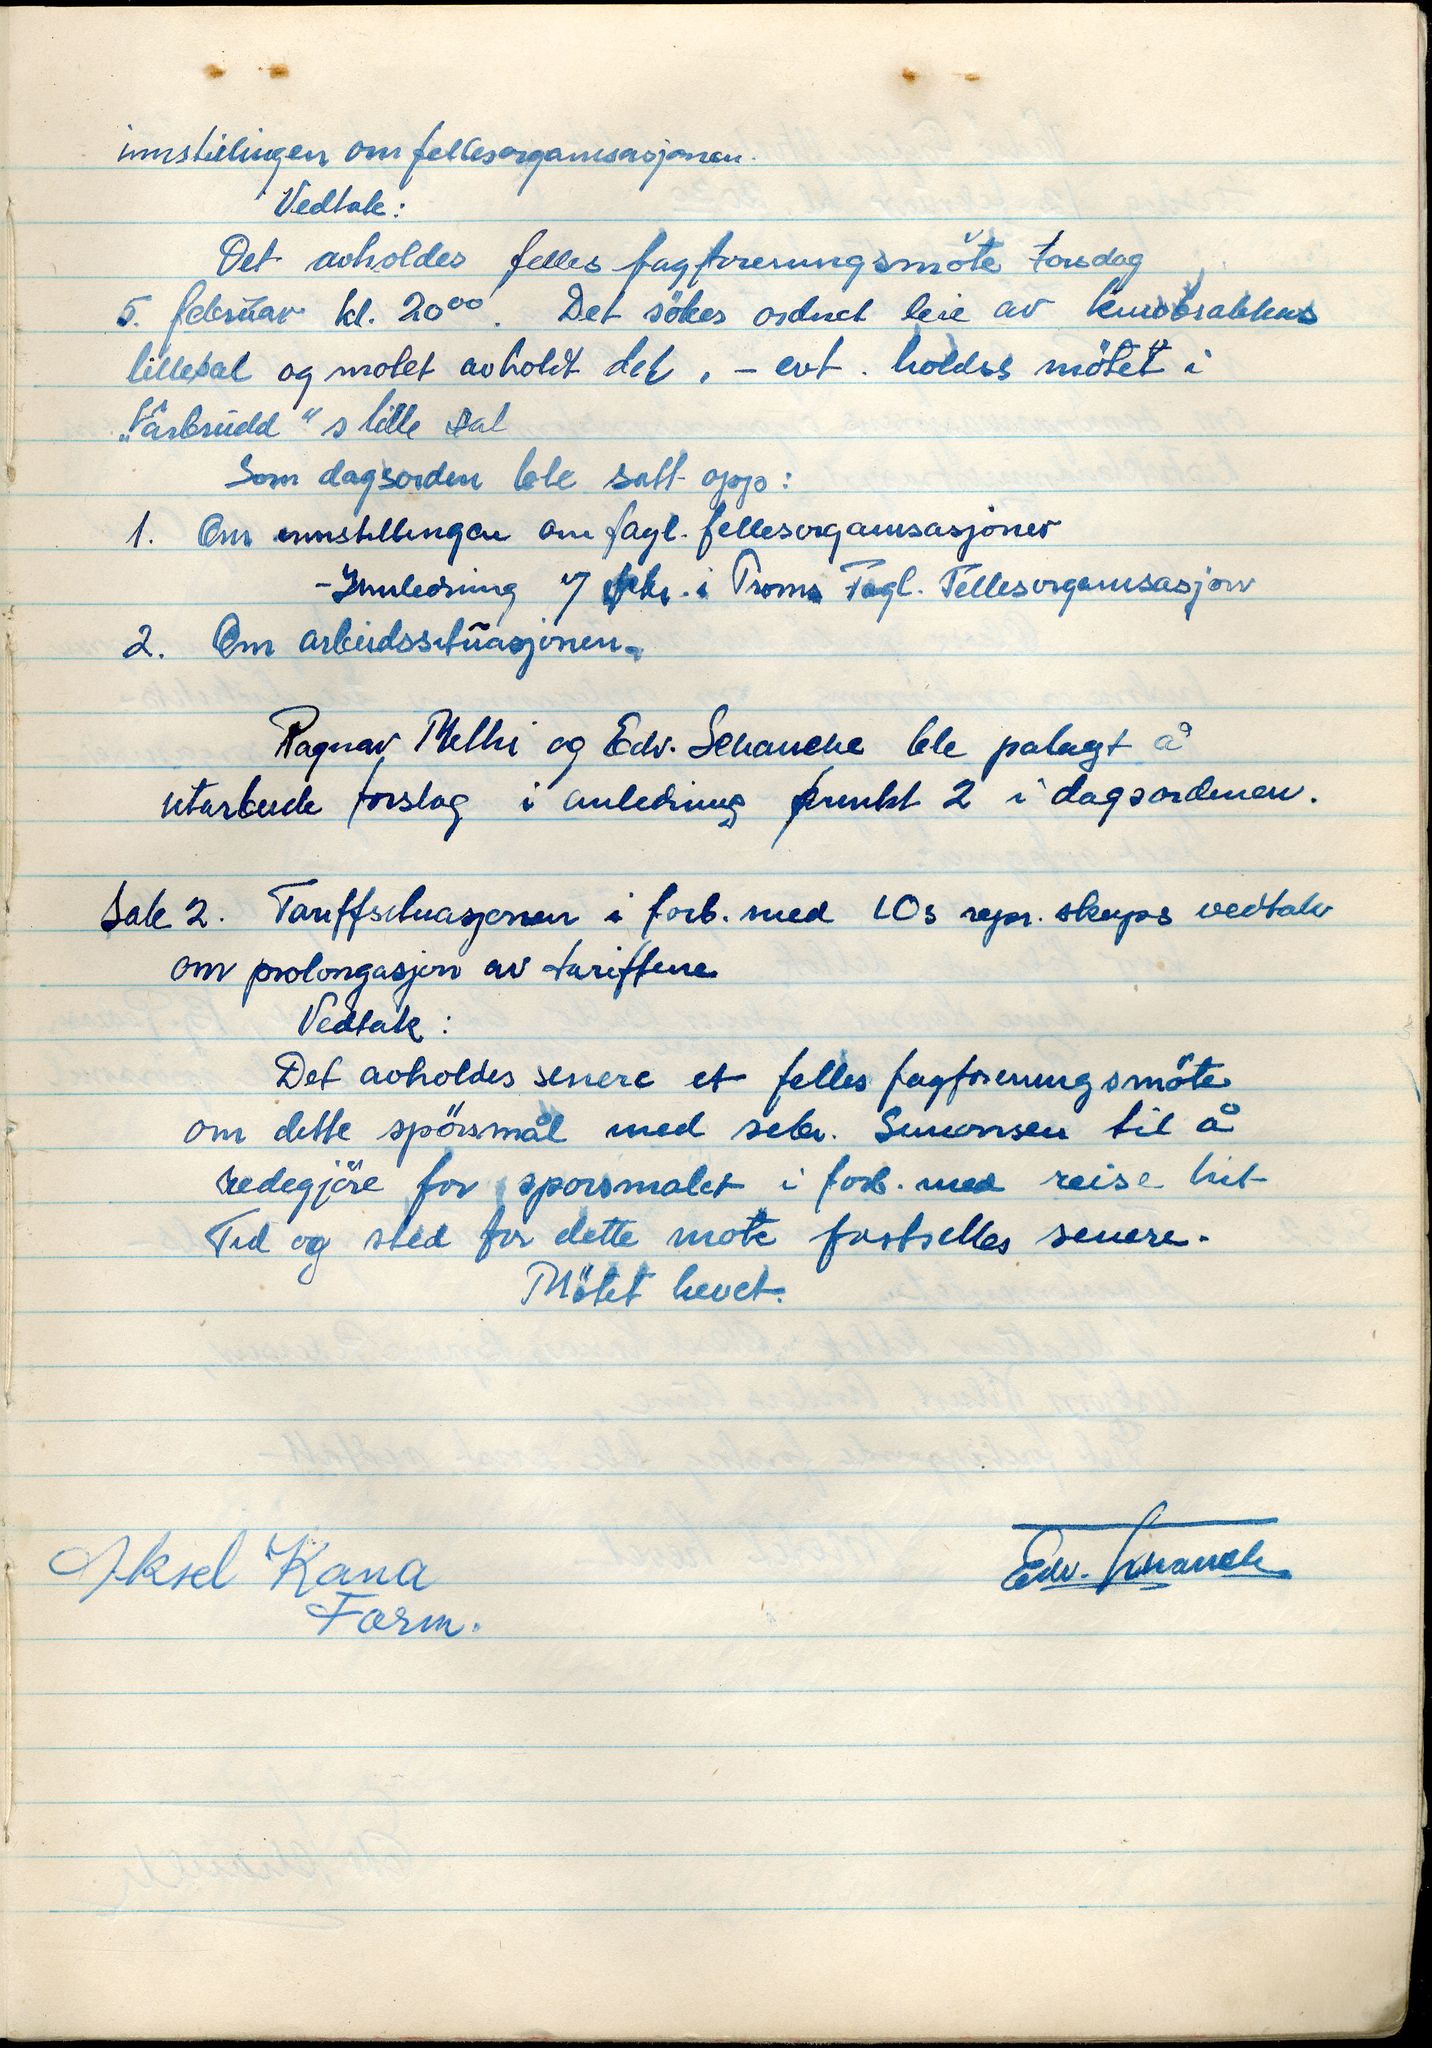 innstillingen om fellesorganisasjonen.
Vedtak:
Det avholdes felles fagforeningsmöte torsdag
5. februar kl. 20⁰⁰. Det sökes ordnet leie av
lillesal og motet avholdt det, – evt. holdes mötet i
„Vårbrudd"s lille sal
Som dagsorden ble satt opp:
1. Om innstillingen om fagl. fellesorganisasjoner
– Innledning v/ sekr. i Troms Fagl. Fellesorganisasjon
2. Om arbeidssituasjonen.
Ragnar Melhi og Edv. Schanche ble palagt å
utarbeide forslag i anledning punkt 2 i dagsordenen.
Sak 2. Tariffsituasjonen i forb. med LOs repr.skaps vedtak
om prolongasjon av tariffene.
Vedtak:
Det avholdes senere et felles fagforeningsmöte
om dette spörsmål med sekr. Simonsen til å
redegjöre for sporsmalet i forb. med reise hit
Tid og sted for dette mote fastselles senere.
Mötet hevet.
Aksel Kana Edv. Schanche
Form.